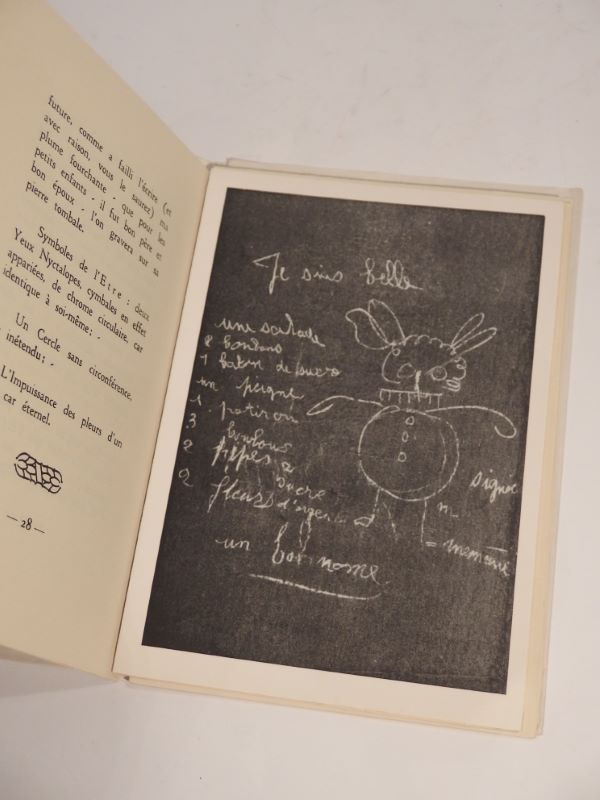 future, comme a failli l'écrire (et
avec raison, vous le saurez) ma
plume fourchante - que pour les
petits enfants - il fut bon père et
bon époux - l'on gravera sur sa
pierre tombale.
Symboles de l'Etre : deux
Yeux Nyctalopes, cymbales en effet
appariées, de chrome circulaire, car
identique à soi-même : -
Un Cercle sans circonférence,
inétendu ; -
L'Impuissance des pleurs d'un
car éternel.
— 28 —
Je suis belle
une salade
2 bonbons
1 baton de sucre
un peigne
1 potiron
3 bonbons
2 pipes
sucre
2 fleurs d'argent
un bon nome
signé
m
= memoire